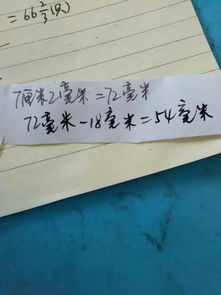 =66 2/3(只)
7厘米2毫米=72毫米
72毫米-18毫米=54毫米